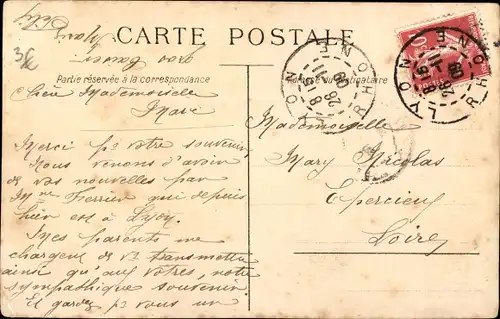 CARTE POSTALE
Partie réservée à la correspondance
Adresse du destinataire
Chère Mademoiselle
Mary
Merci pr votre souvenir,
Nous venons d'avoir
de vos nouvelles par
Mme Ferrier qui depuis
hier est à Lyon.
Mes parents me
chargent de vs transmettre
ainsi qu'aux vôtres, notre
sympathique souvenir.
Et gardez pr vous un
Mademoiselle
Mary Nicolas
Epercieux
Loire
LYON RHONE
LYON RHONE
10